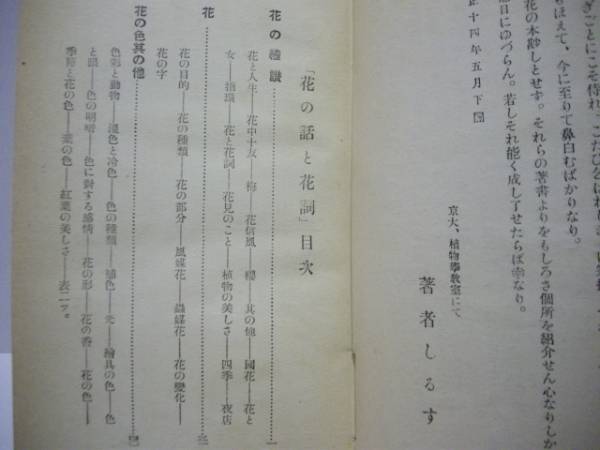 ぼえて、今に至りて鼻白むばかりなり。
花の本妙しとせず。それらの著書よりをもしろき個所を紹介せん心なりしか
目にゆづらん。若しそれ能く成し了せたらば幸なり。
十四年五月下
京大、植物學教室にて
著者しるす
「花の話と花詞」目次
花の禮讃……一
花と人生——花中十友——梅——花信風——櫻——其の他——國花——花と
女——指環——花と花詞——花見のこと——植物の美しさ——四季——夜店
花……三
花の目的——花の種類——花の部分——風媒花——蟲媒花——花の變化——
花の字
花の色其の他
色彩と動物——温色と冷色——色の種類——補色——光——繪具の色——色
と眼——色の明暗——色に對する感情——花の形——花の香——花の色——
季節と花の色——葉の色——紅葉の美しさ——表二ツ。